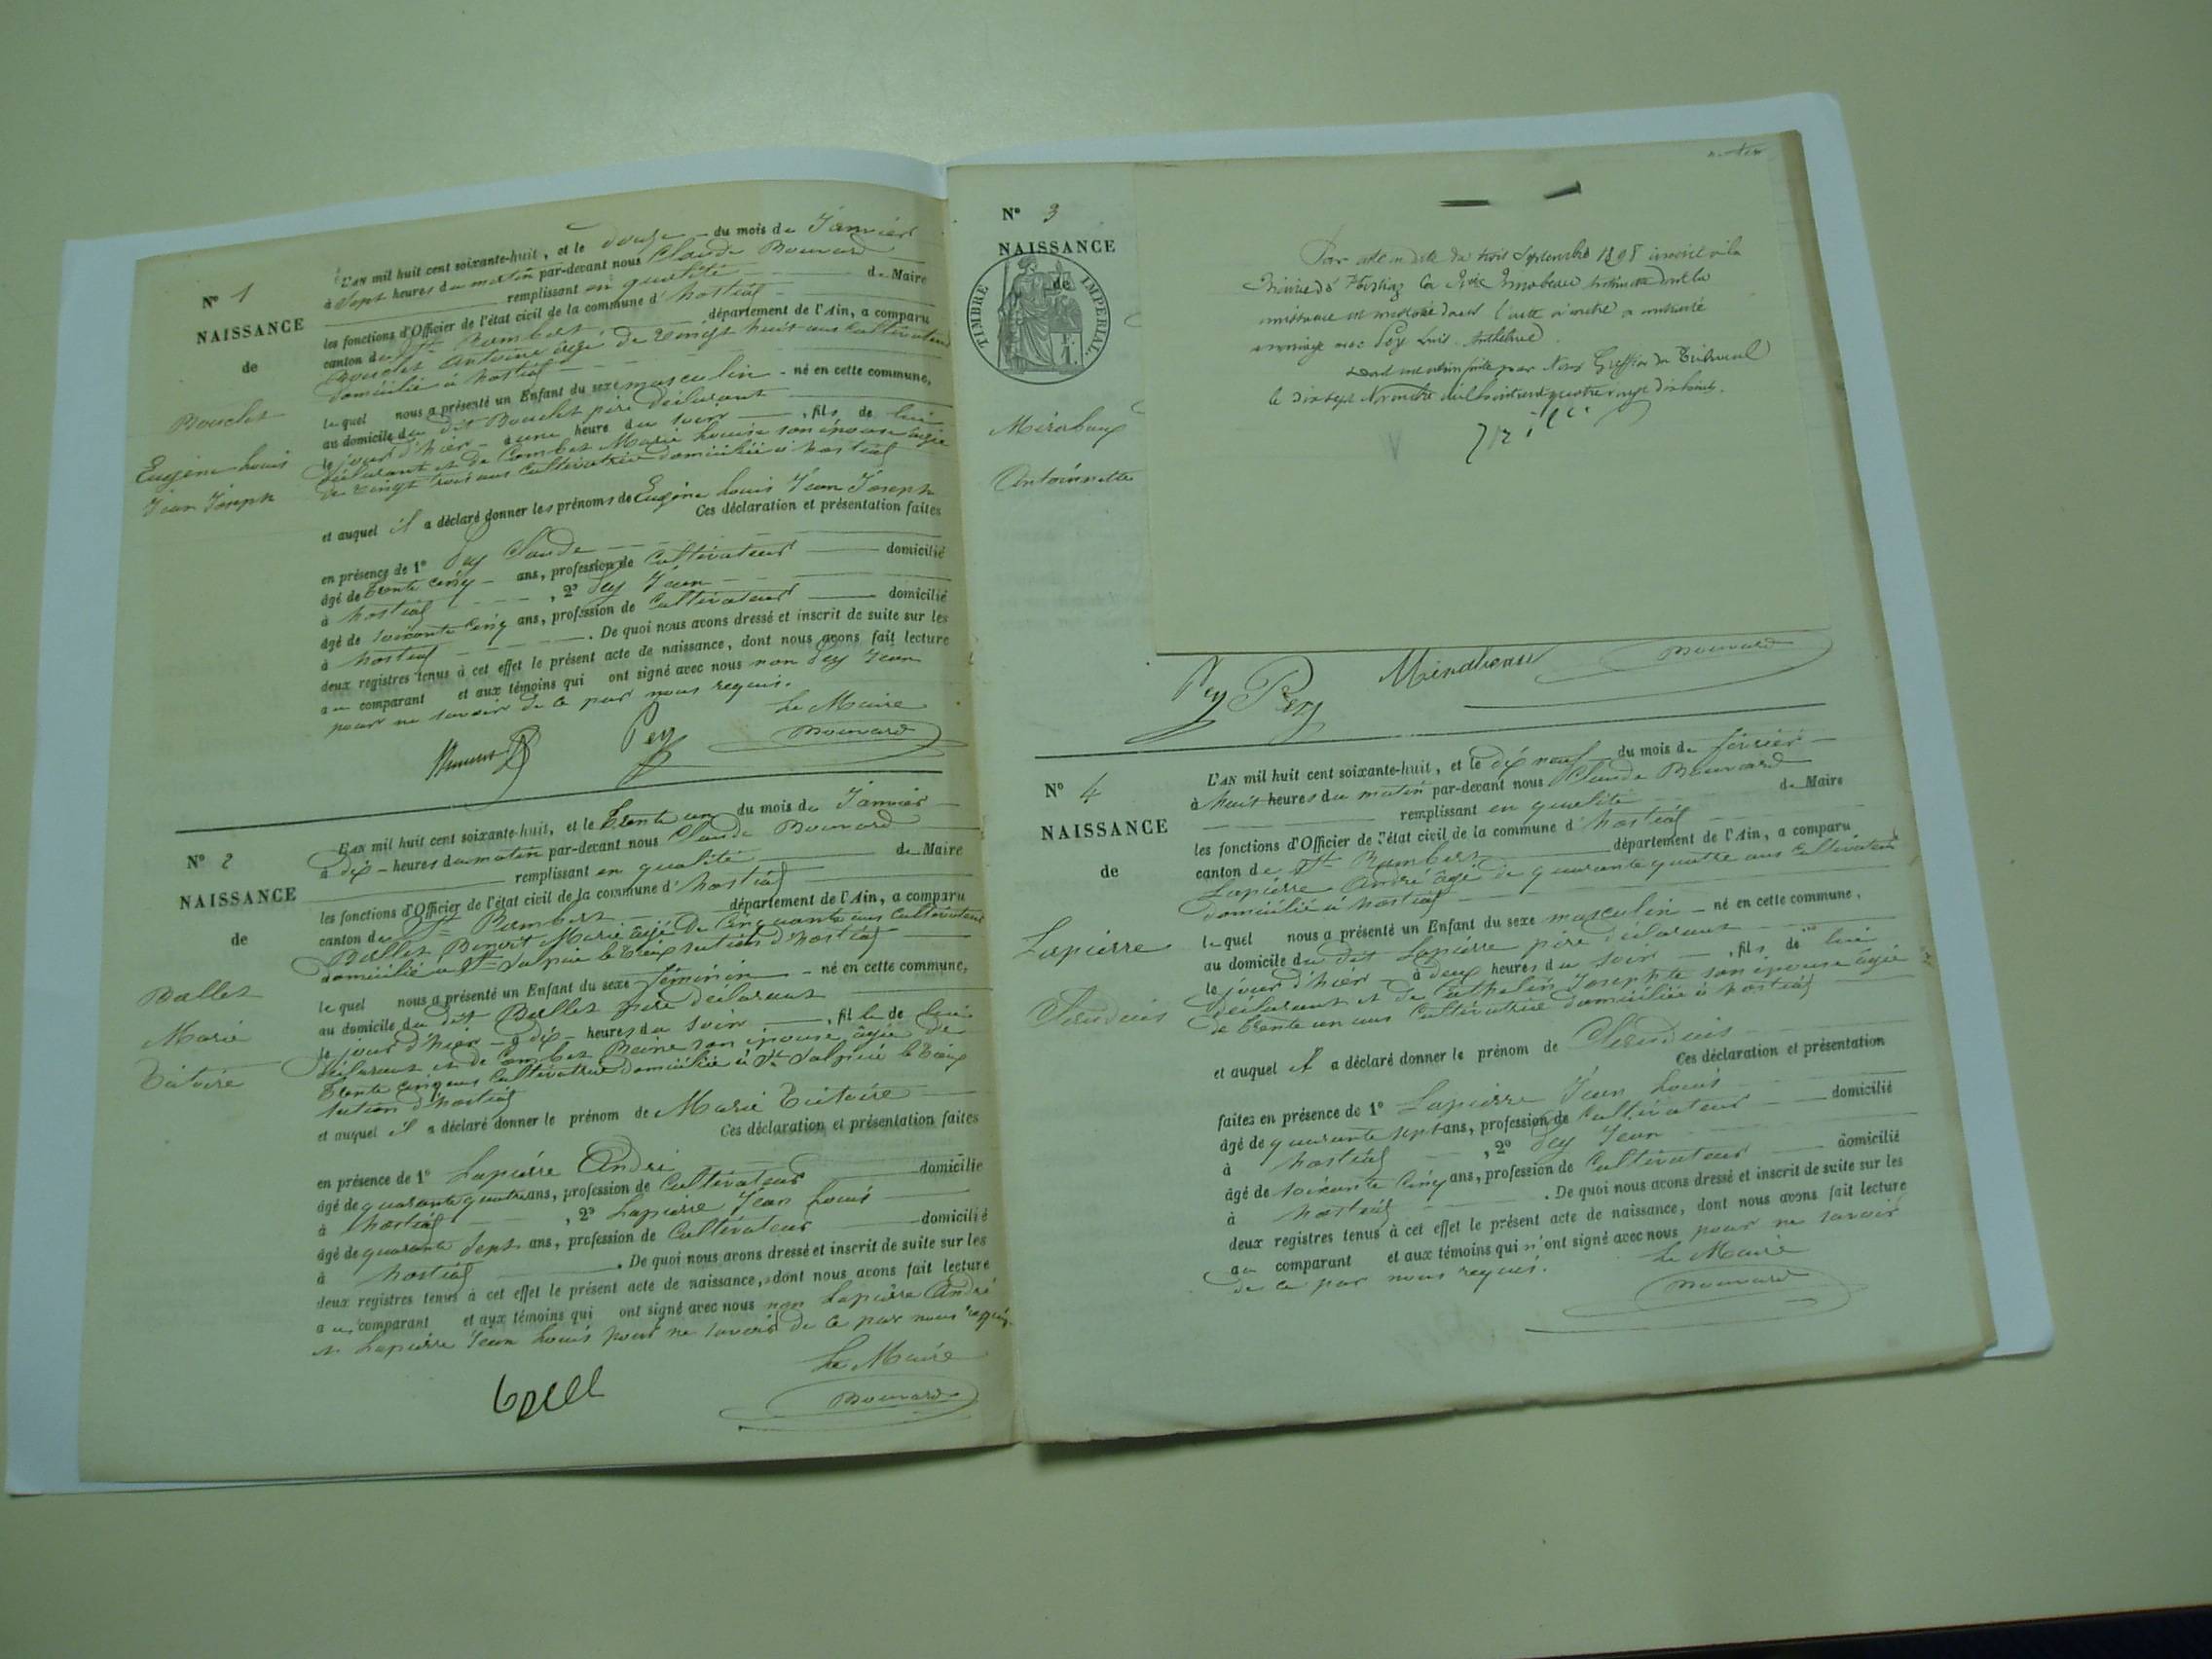 Nº 1
NAISSANCE
de
Bouclet
Eugène Louis
Jean Joseph
L'AN mil huit cent soixante-huit, et le douze du mois de Janvier
à Sept heures du matin par-devant nous Claude Bouvard
remplissant en qualité de Maire
les fonctions d'Officier de l'état civil de la commune d'hostiaz
canton de St Rambert département de l'Ain, a comparu
Antoine âgé de vingt huit ans cultivateur
domicilié à hostiaz
lequel nous a présenté un Enfant du sexe masculin né en cette commune,
au domicile du dit père déclarant
le jour d'hier à une heure du soir, fils de lui
déclarant et de Combet Marie Louise son épouse âgée
de vingt trois ans cultivatrice domiciliée à hostiaz
et auquel il a déclaré donner les prénoms de Eugène Louis Jean Joseph
Ces déclaration et présentation faites
en présence de 1º Pey Claude
âgé de trente cinq ans, profession de Cultivateur domicilié
à hostiaz, 2º Pey Jean
âgé de soixante cinq ans, profession de Cultivateur domicilié
à hostiaz. De quoi nous avons dressé et inscrit de suite sur les
deux registres tenus à cet effet le présent acte de naissance, dont nous avons fait lecture
au comparant et aux témoins qui ont signé avec nous non Pey Jean
pour ne savoir de ce par nous requis.
Le Maire
Pey Bouvard
Nº 2
NAISSANCE
de
Ballet
Marie
L'AN mil huit cent soixante-huit, et le trente un du mois de Janvier
à dix heures du matin par-devant nous Claude Bouvard
remplissant en qualité de Maire
les fonctions d'Officier de l'état civil de la commune d'hostiaz
canton de St Rambert département de l'Ain, a comparu
Ballet Benoit Marie âgé de Cinquante ans Cultivateur
domicilié à St Sulpice le Vieux section d'hostiaz
lequel nous a présenté un Enfant du sexe féminin né en cette commune,
au domicile du dit Ballet père déclarant
le jour d'hier à dix heures du soir, fille de lui
déclarant et de Combet Reine son épouse âgée de
trente cinq ans Cultivatrice domiciliée à St Sulpice le Vieux
section d'hostiaz
et auquel il a déclaré donner le prénom de Marie
Ces déclaration et présentation faites
en présence de 1º Lapierre André
âgé de quarante quatre ans, profession de Cultivateur domicilié
à hostiaz, 2º Lapierre Jean Louis
âgé de quarante sept ans, profession de Cultivateur domicilié
à hostiaz. De quoi nous avons dressé et inscrit de suite sur les
deux registres tenus à cet effet le présent acte de naissance, dont nous avons fait lecture
au comparant et aux témoins qui ont signé avec nous non Lapierre André
et Lapierre Jean Louis pour ne savoir de ce par nous requis.
Le Maire
Bouvard
Nº 3
NAISSANCE
de
TIMBRE IMPERIAL
Antoinette
Par acte en date du trois Septembre 1898 inscrit à la
Mairie d'Hostiaz la dont la
naissance est dans l'acte ci contre a contracté
mariage avec Pey Louis Anthelme
par Nous Greffier du Tribunal
le dix sept Novembre mil huit cent quatre vingt dix huit.
Pey Pey Bouvard
Nº 4
NAISSANCE
de
Lapierre
L'AN mil huit cent soixante-huit, et le dix neuf du mois de février
à huit heures du matin par-devant nous Claude Bouvard
remplissant en qualité de Maire
les fonctions d'Officier de l'état civil de la commune d'hostiaz
canton de St Rambert département de l'Ain, a comparu
Lapierre André âgé de quarante quatre ans Cultivateur
domicilié à hostiaz
lequel nous a présenté un Enfant du sexe masculin né en cette commune,
au domicile du dit Lapierre père déclarant
le jour d'hier à deux heures du soir, fils de lui
déclarant et de Josephte son épouse âgée
de trente un ans Cultivatrice domiciliée à hostiaz
et auquel il a déclaré donner le prénom de
Ces déclaration et présentation
faites en présence de 1º Lapierre Jean Louis
âgé de quarante sept ans, profession de Cultivateur domicilié
à hostiaz, 2º Pey Jean
âgé de soixante cinq ans, profession de Cultivateur domicilié
à hostiaz. De quoi nous avons dressé et inscrit de suite sur les
deux registres tenus à cet effet le présent acte de naissance, dont nous avons fait lecture
au comparant et aux témoins qui n'ont signé avec nous pour ne savoir
de ce par nous requis.
Le Maire
Bouvard